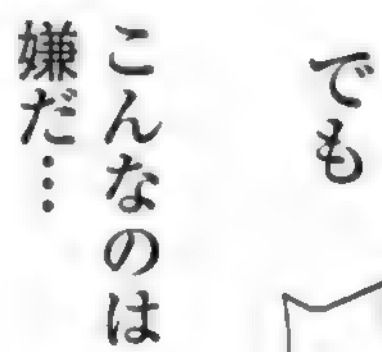 でも
こんなのは
嫌だ…